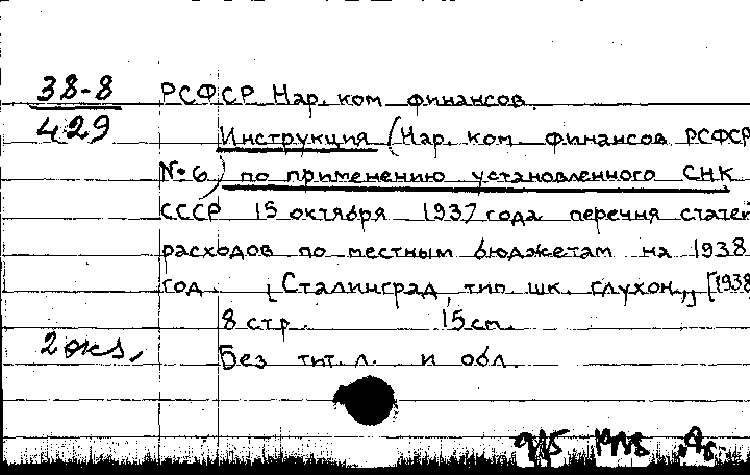 38-8 РСФСР Нар. ком финансов.
429 Инструкция (Нар. ком финансов РСФСР
№ 6) по применению установленного СНК
СССР 15 октября 1937 года перечня статей
расходов по местным бюджетам на 1938
год. [Сталинград, тип. шк. глухон.,] [1938
8 стр. 15 см.
2 экз. Без тит. л. и обл.